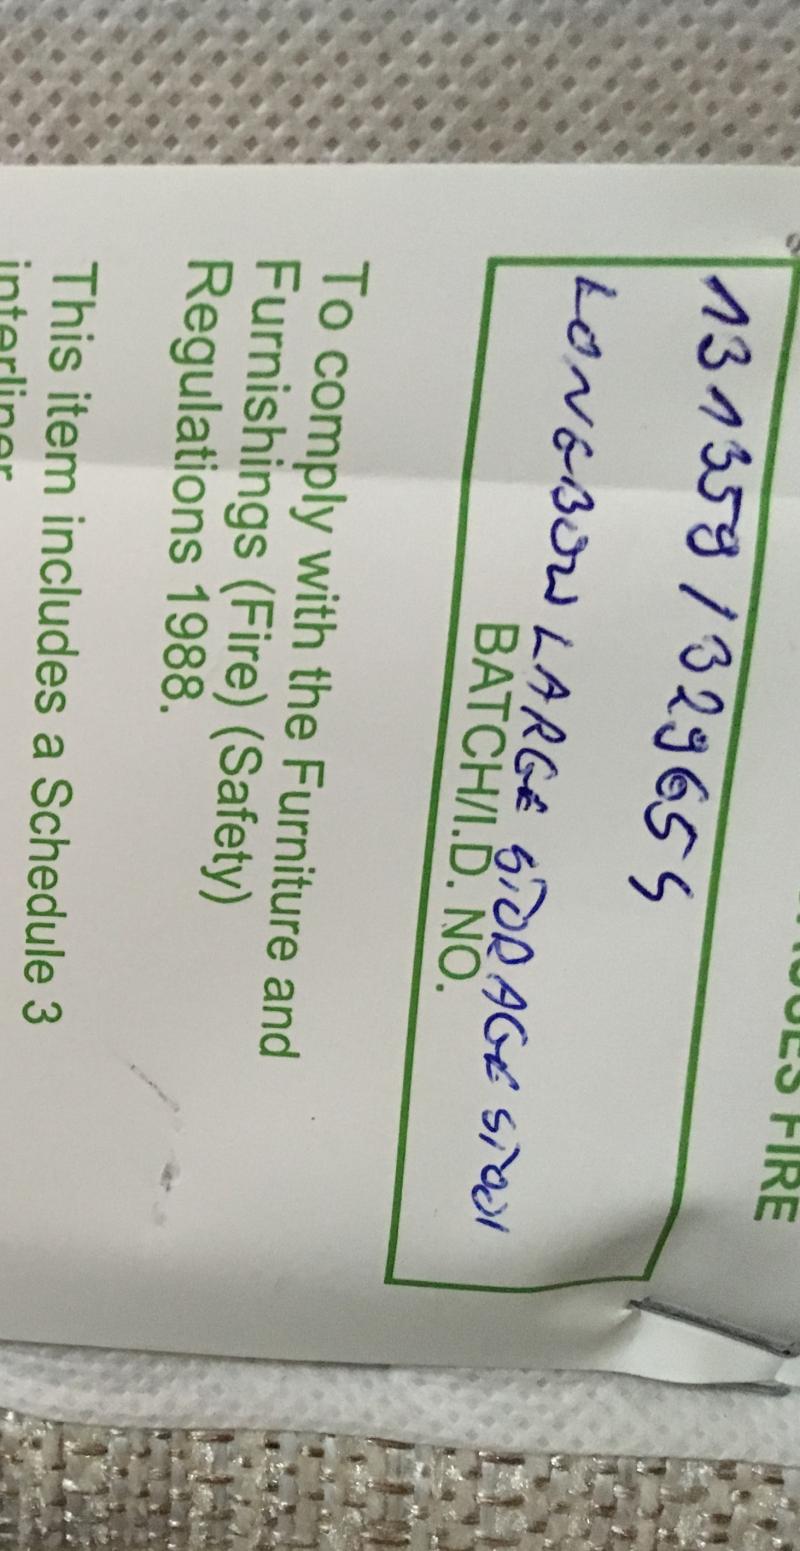 FIRE
131359 / 329655
LONGBOW LARGE STORAGE STOOL
BATCH/I.D. NO.
To comply with the Furniture and
Furnishings (Fire) (Safety)
Regulations 1988.
This item includes a Schedule 3
interliner